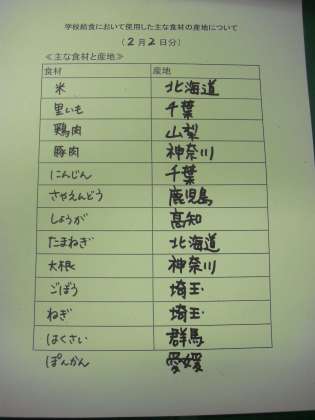 学校給食において使用した主な食材の産地について
(2月2日分)
≪主な食材と産地≫
食材 産地
米 北海道
里いも 千葉
鶏肉 山梨
豚肉 神奈川
にんじん 千葉
さやえんどう 鹿児島
しょうが 高知
たまねぎ 北海道
大根 神奈川
ごぼう 埼玉
ねぎ 埼玉
はくさい 群馬
ぽんかん 愛媛